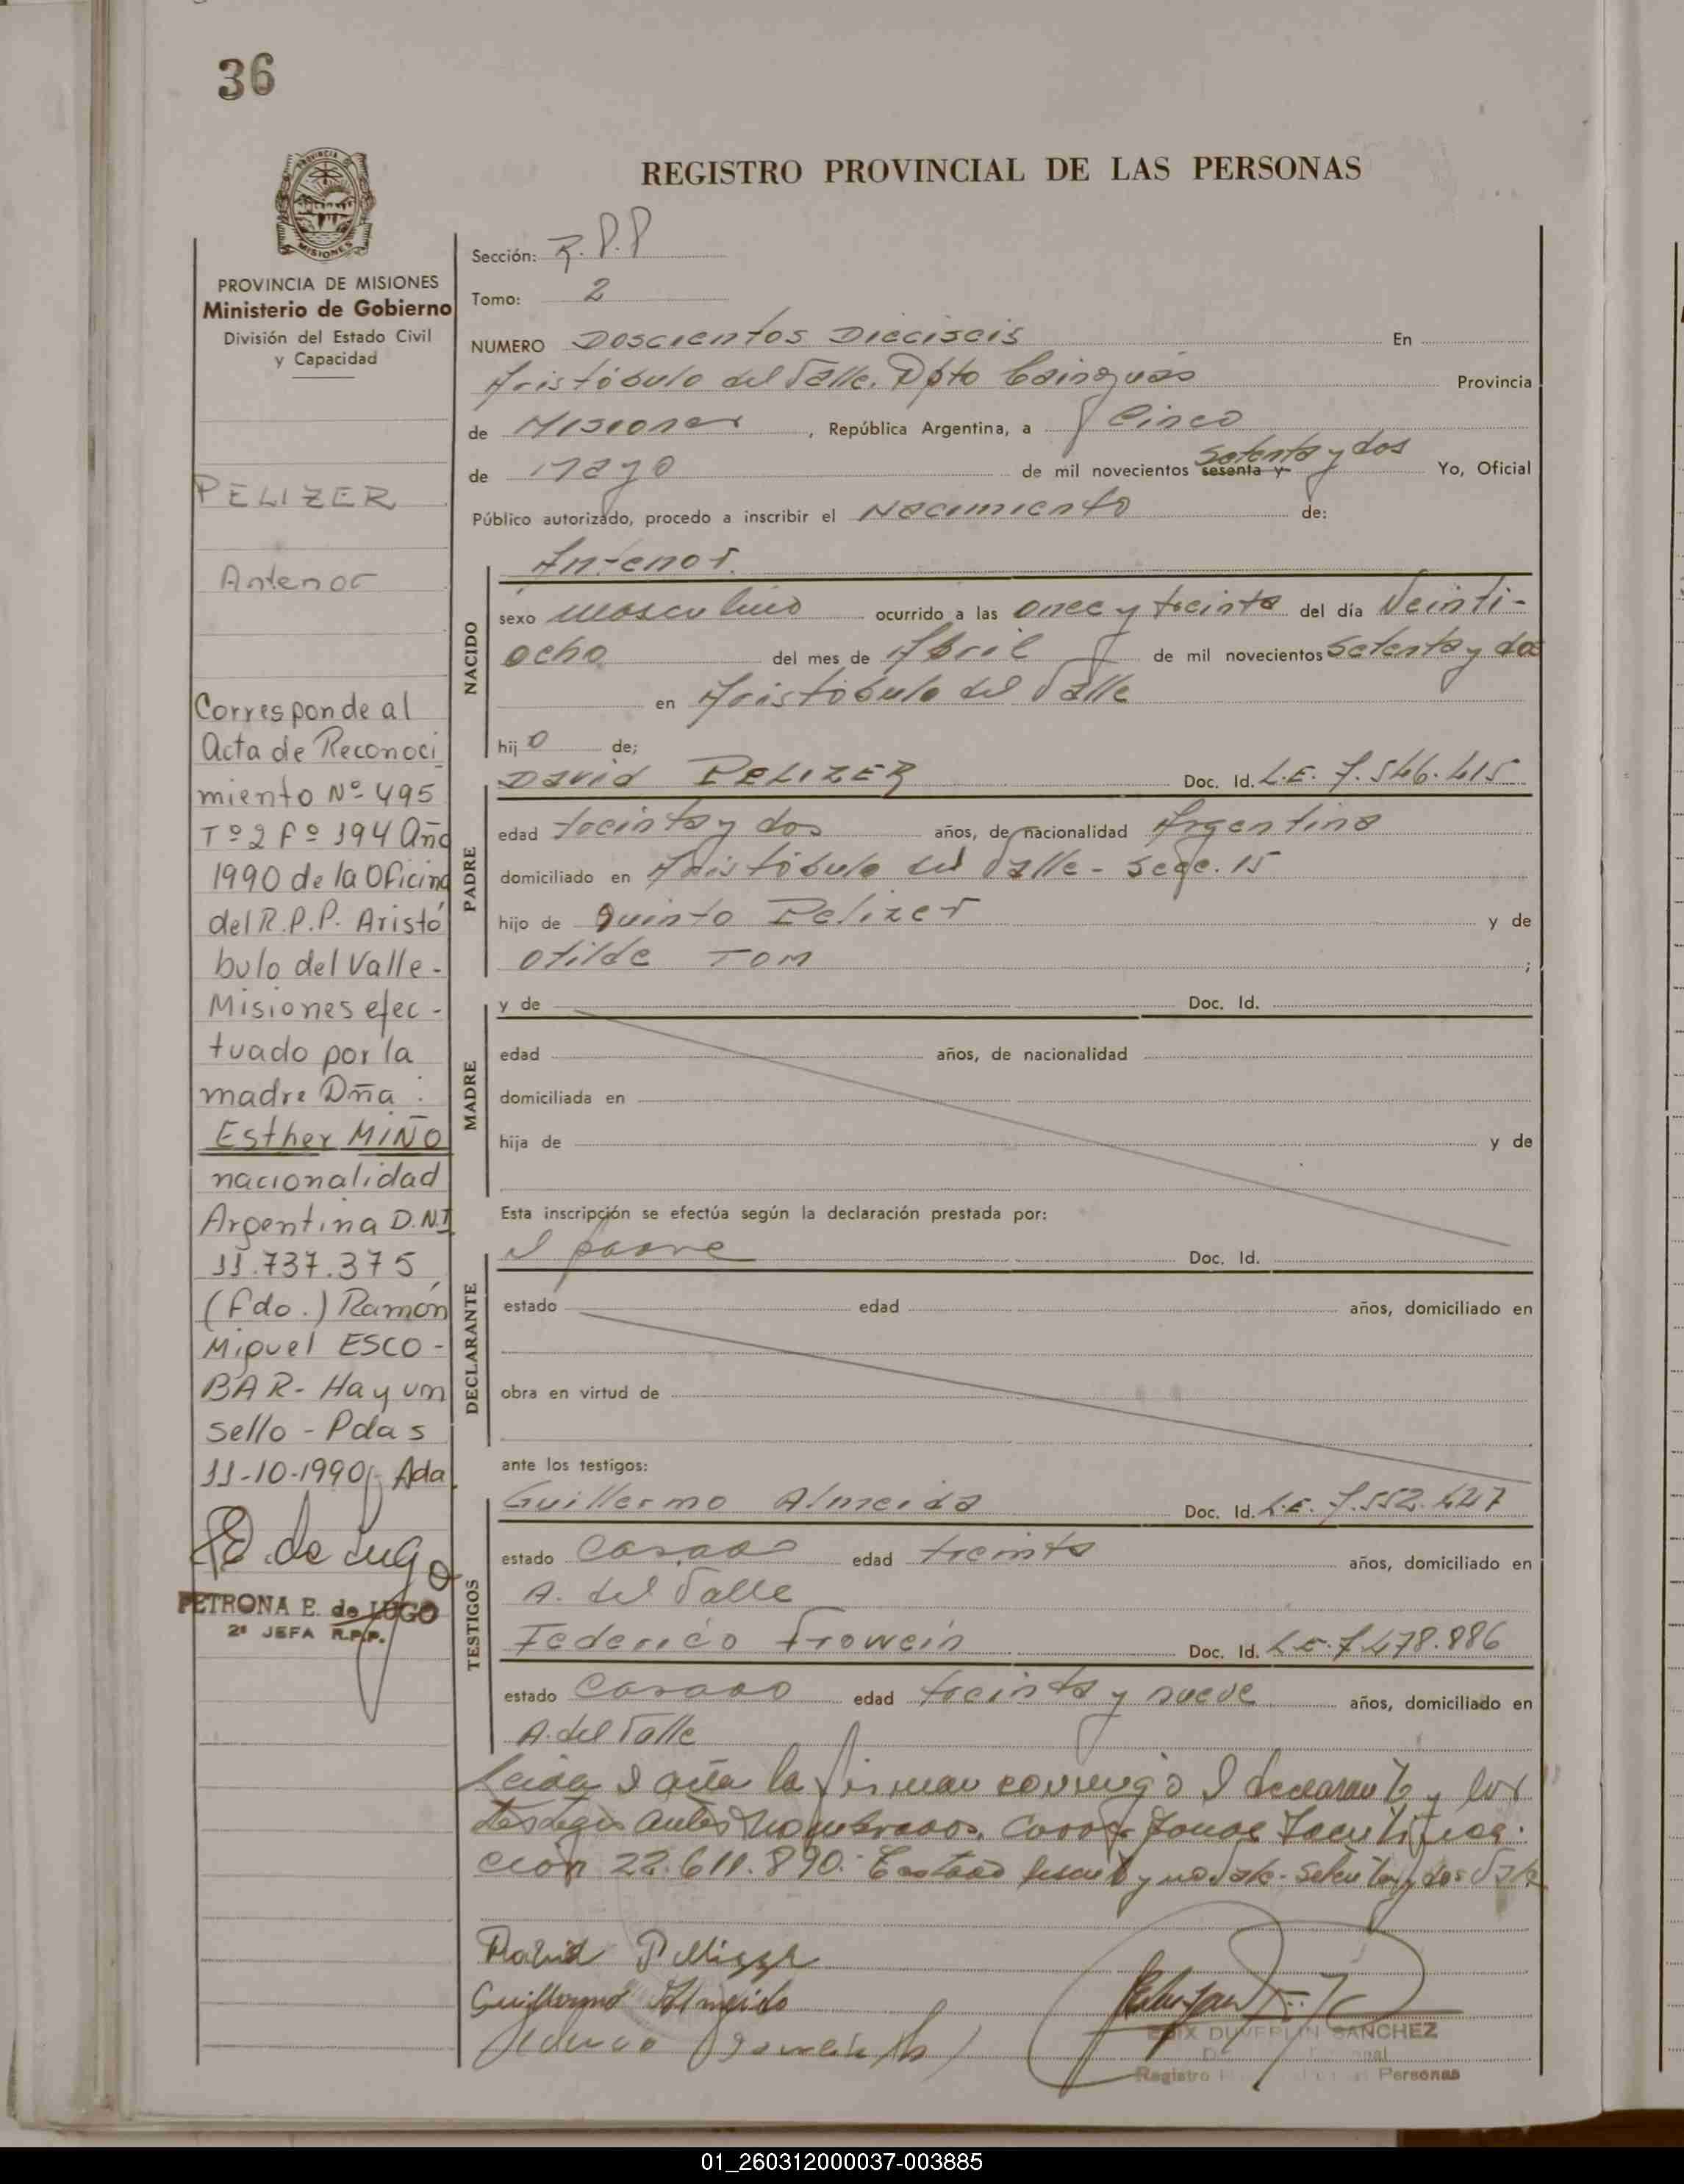 36
REGISTRO PROVINCIAL DE LAS PERSONAS
PROVINCIA DE MISIONES
Ministerio de Gobierno
División del Estado Civil
y Capacidad
PELIZER
Antenor
Corresponde al
Acta de Reconoci
miento Nº 495
Tº 2 Fº 194 Año
1990 de la Oficina
del R.P.P. Aristó
bulo del Valle-
Misiones efec-
tuado por la
madre Dña:
Esther MIÑO
nacionalidad
Argentina D.N.I
11.737.375
(Fdo.) Ramón
Miguel ESCO-
BAR- Hay un
sello - Pdas
11-10-1990
E. de Lugo
PETRONA E. de LUGO
2ª JEFA R.P.P.
Sección: R.P.P
Tomo: 2
NUMERO Doscientos Dieciseis En
Aristóbulo del Valle, Dpto Cainguás Provincia
de Misiones, República Argentina, a Cinco
de Mayo de mil novecientos sesenta y Setenta y dos Yo, Oficial
Público autorizado, procedo a inscribir el Nacimiento de:
NACIDO
Antenor
sexo masculino ocurrido a las once y treinta del día Veinti-
ocho del mes de Abril de mil novecientos Setenta y dos
en Aristóbulo del Valle
hijo de;
PADRE
David PELIZER Doc. Id. L.E. 7.546.415
edad treinta y dos años, de nacionalidad Argentina
domiciliado en Aristóbulo del Valle - Secc. 15
hijo de Quinto Pelizer y de
Otilde TOM ;
MADRE
y de Doc. Id.
edad años, de nacionalidad
domiciliada en
hija de y de
Esta inscripción se efectúa según la declaración prestada por:
DECLARANTE
el padre Doc. Id.
estado edad años, domiciliado en
obra en virtud de
ante los testigos:
TESTIGOS
Guillermo Almeida Doc. Id. L.E. 7.552.427
estado Casado edad treinta años, domiciliado en
A. del Valle
Federico Frowein Doc. Id. L.E. 7.478.886
estado Casado edad treinta y nueve años, domiciliado en
A. del Valle
Leida el acta la firman conmigo el declarante y los
testigos antes nombrados.
ción 22.611.890.
David Pellizer
Guillermo Almeida
Federico Frowein (h)
DUVERLIN SANCHEZ
Registro Personas
01_260312000037-003885